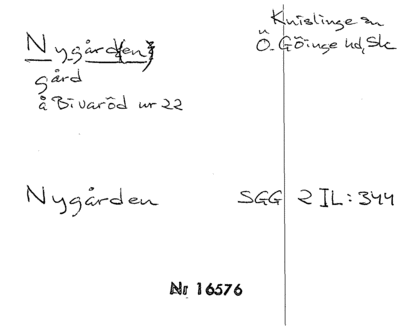 Nygård(en)
gård
å Bivaröd nr 22
Knislinge sn
Ö. Göinge hd, Sk
Nygården SGG 2 IL: 344
Nr 16576